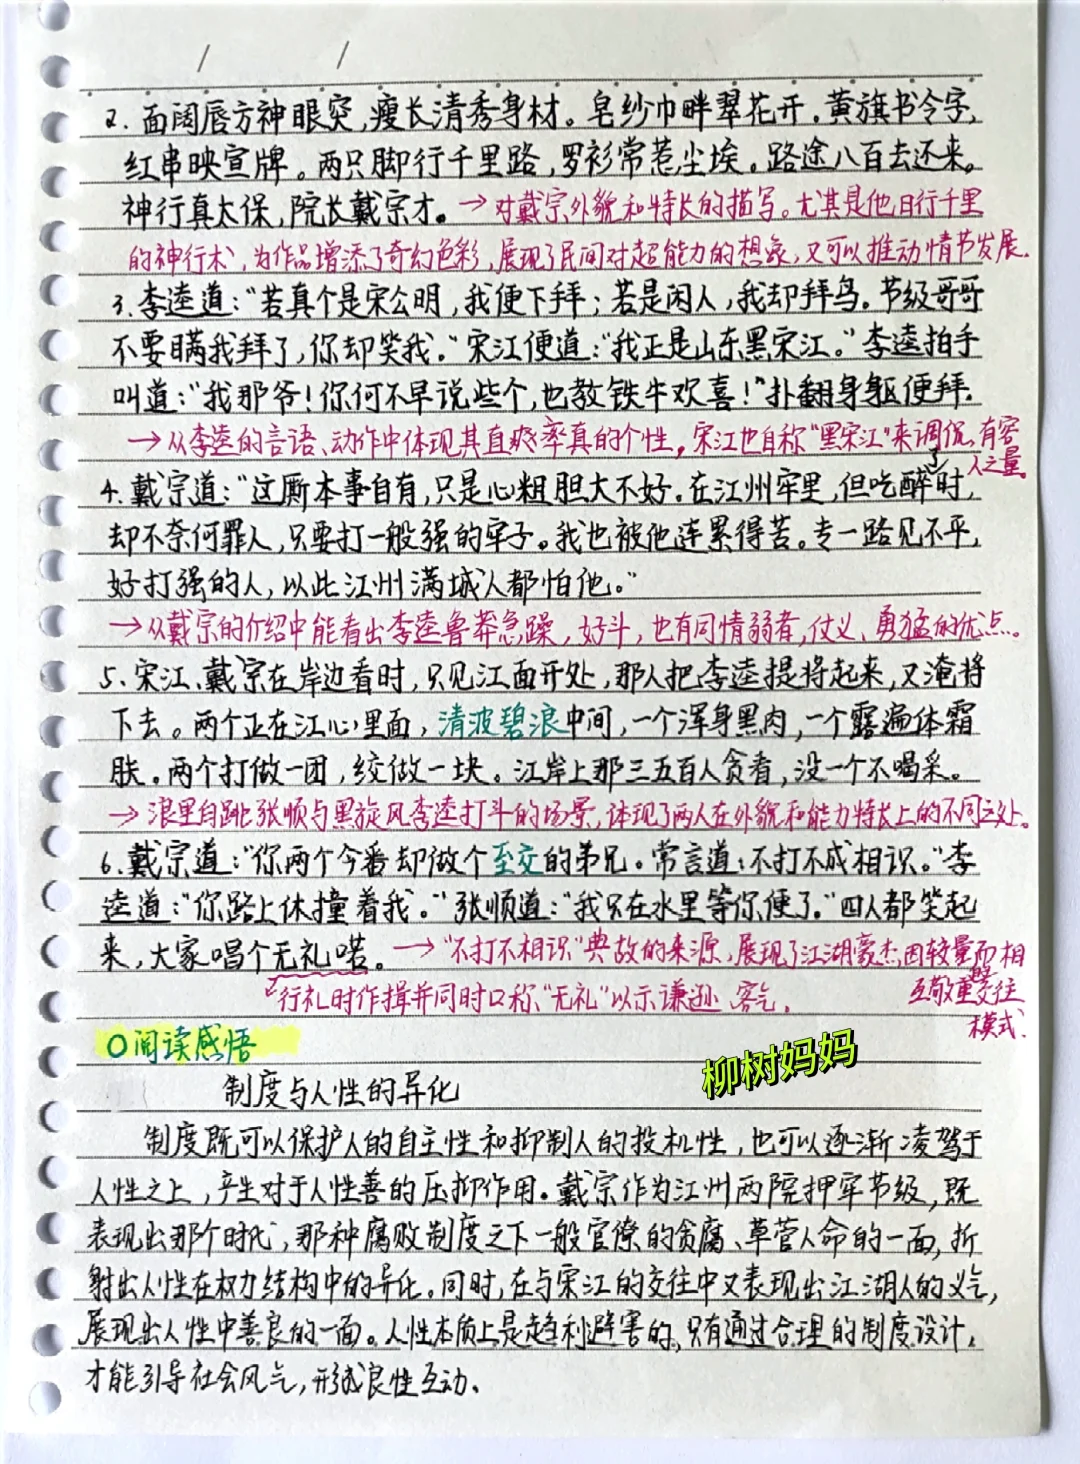 2. 面阔唇方神眼突,瘦长清秀身材。皂纱巾畔翠花开。黄旗书令字,
红串映宣牌。两只脚行千里路,罗衫常惹尘埃。路途八百去还来。
神行真太保,院长戴宗才。→对戴宗外貌和特长的描写。尤其是他日行千里
的神行术,为作品增添了奇幻色彩,展现了民间对超能力的想象,又可以推动情节发展.
3. 李逵道:“若真个是宋公明,我便下拜;若是闲人,我却拜鸟。节级哥哥
不要瞒我拜了,你却笑我。”宋江便道:“我正是山东黑宋江。”李逵拍手
叫道:“我那爷!你何不早说些个,也教铁牛欢喜!”扑翻身躯便拜.
→从李逵的言语、动作中体现其直爽率真的个性。宋江也自称“黑宋江”来调侃,有容
人之量。
4. 戴宗道:“这厮本事自有,只是心粗胆大不好。在江州牢里,但吃醉了时,
却不奈何罪人,只要打一般强的牢子。我也被他连累得苦。专一路见不平,
好打强的人,以此江州满城人都怕他。”
→从戴宗的介绍中能看出李逵鲁莽急躁,好斗,也有同情弱者,仗义、勇猛的优点。
5. 宋江、戴宗在岸边看时,只见江面开处,那人把李逵提将起来,又淹将
下去。两个正在江心里面,清波碧浪中间,一个浑身黑肉,一个露遍体霜
肤。两个打做一团,绞做一块。江岸上那三五百人贪看,没一个不喝采。
→浪里白跳张顺与黑旋风李逵打斗的场景,体现了两人在外貌和能力特长上的不同之处。
6. 戴宗道:“你两个今番却做个至交的弟兄。常言道:不打不成相识。”李
逵道:“你路上休撞着我。”张顺道:“我只在水里等你便了。”四人都笑起
来,大家唱个无礼喏。→“不打不相识”典故的来源,展现了江湖豪杰因较量而相
互敬重的交往
模式.
行礼时作揖并同时口称“无礼”以示谦逊、客气。
○阅读感悟
柳树妈妈
制度与人性的异化
制度既可以保护人的自主性和抑制人的投机性,也可以逐渐凌驾于
人性之上,产生对于人性善的压抑作用。戴宗作为江州两院押牢节级,既
表现出那个时代,那种腐败制度之下一般官僚的贪腐、草菅人命的一面,折
射出人性在权力结构中的异化。同时,在与宋江的交往中又表现出江湖人的义气,
展现出人性中善良的一面。人性本质上是趋利避害的,只有通过合理的制度设计,
才能引导社会风气,形成良性互动.